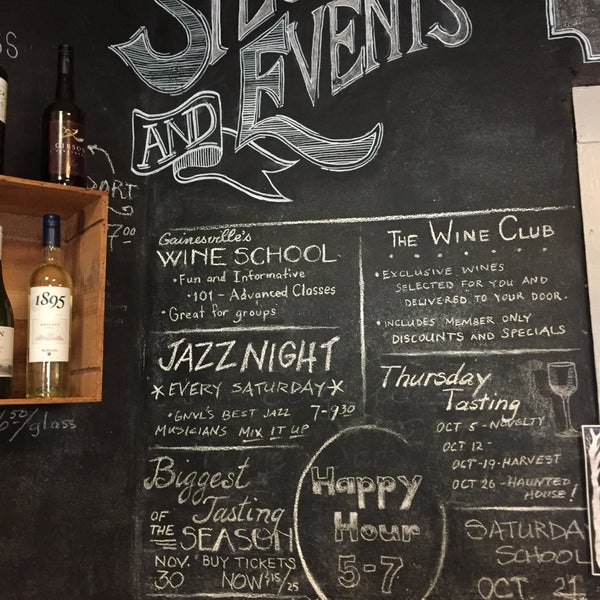 EVENTS
AND
GIBSON
PORT
7.00
1895
6.50/glass
Gainesville's
WINE SCHOOL
• Fun and Informative
• 101 - Advanced Classes
• Great for groups
JAZZ NIGHT
*EVERY SATURDAY*
• GNVL'S BEST JAZZ 7-9:30
MUSICIANS MIX IT UP
Biggest
Tasting
OF THE SEASON
NOV. 30 BUY TICKETS NOW $15/25
Happy
Hour
5-7
THE WINE CLUB
• EXCLUSIVE WINES
SELECTED FOR YOU AND
DELIVERED TO YOUR DOOR.
• INCLUDES MEMBER ONLY
DISCOUNTS AND SPECIALS
Thursday
Tasting
OCT 5 - NOVELTY
OCT 12 -
OCT-19-HARVEST
OCT 26 - HAUNTED
HOUSE!
SATURDA
SCHOOL
OCT. 21